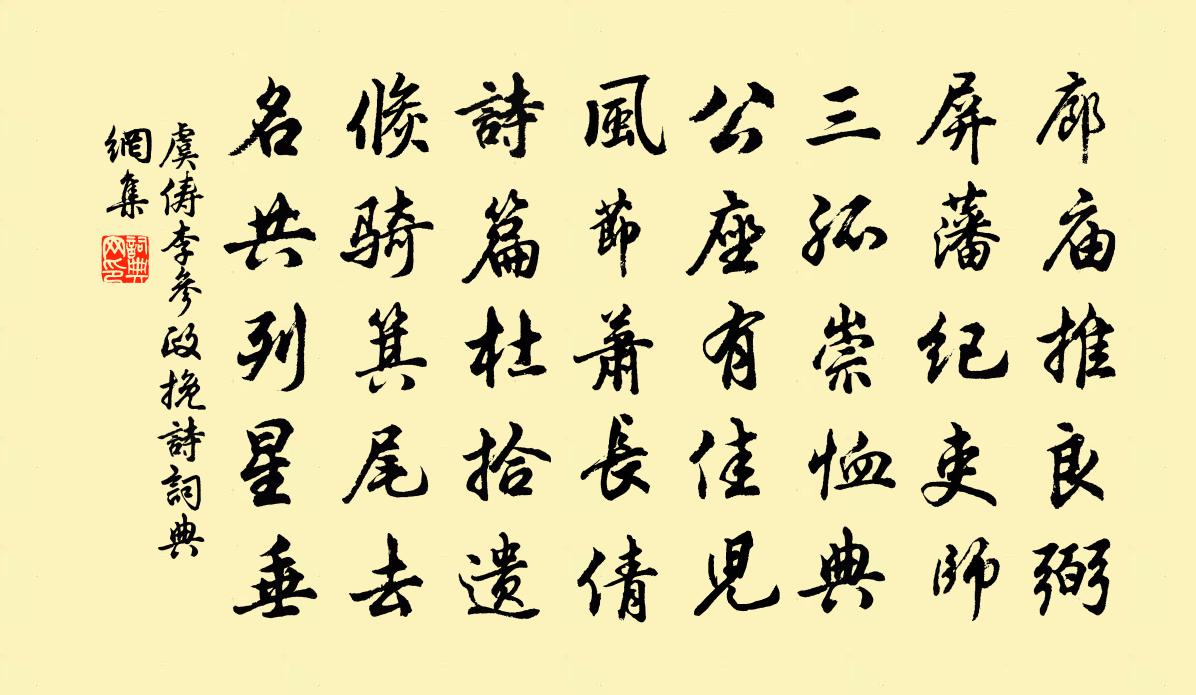 廊庙推良弼
屏藩纪吏師
三孤崇恤典
公座有佳児
風節萧長倩
詩篇杜拾遗
倏骑箕尾去
名共列星垂
虞俦李參政挽詩詞典
網集
詞典
网印